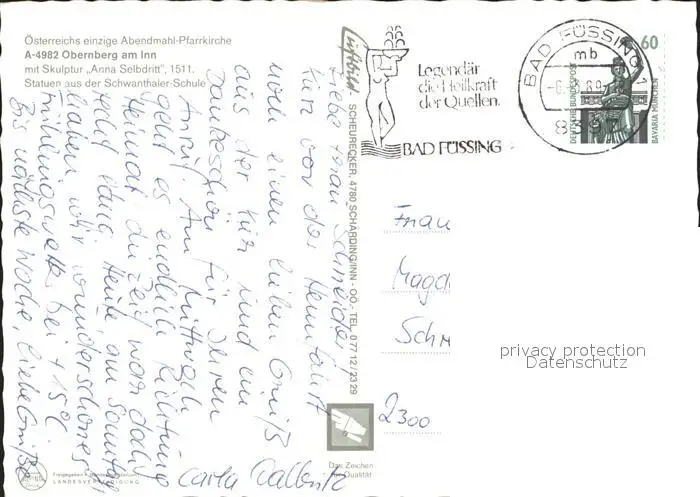 Österreichs einzige Abendmahl-Pfarrkirche
A-4982 Obernberg am Inn
mit Skulptur „Anna Selbdritt", 1511.
Statuen aus der Schwanthaler-Schule
Luftbild
SCHEURECKER, 4780 SCHÄRDING/INN - OÖ., TEL. 0 77 12 / 23 29
Legendär
die Heilkraft
der Quellen.
BAD FÜSSING
BAD FÜSSING
mb
8397
60
DEUTSCHE BUNDESPOST
BAVARIA MÜNCHEN
Liebe Frau Schneider,
kurz vor der Heimfahrt
noch einen lieben Gruß
aus der Kur und ein
Dankeschön für Ihren
Anruf. Am Mittwoch
geht es endlich Richtung
Heimat, die Zeit war doch
sehr lang. Heute, am Sonntag
haben wir wunderschönes
Frühlingswetter bei + 15°C.
Bis nächste Woche, liebe Grüße
Carla
Frau
Magd
Sch
2300
privacy protection
Datenschutz
Das Zeichen
für Qualität
LANDESVERTEIDIGUNG